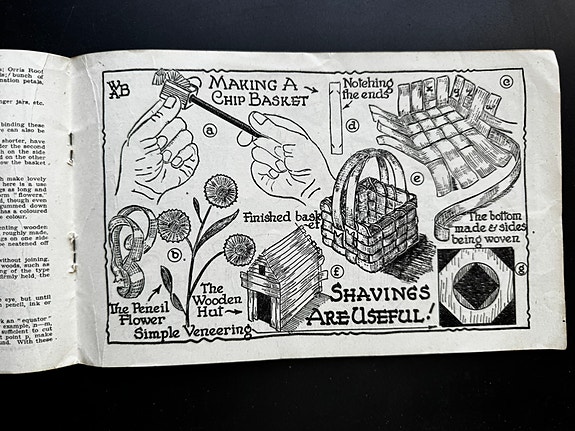 s; Orris Root
ls; bunch of
nation petals,
nger jars, etc.
binding these
ve can also be
shorter, have
der the second
ch on the side.
d on the other
ow the basket,
h make lovely
here is a use
gs as long and
orm "flowers,"
d, though even
gummed down
has a coloured
e colour.
enting wooden
roughly made,
ngs on one side
be neatened off
without joining,
woods, such as
ng of the type
firmly held, the
e eye, but until
n pencil, ink or
k an "equator"
example, n—m,
sufficient to cut
t point p, make
nd. With these
MAKING A
CHIP BASKET
Notching
the ends
a
d
c
e
Finished bask
et
The bottom
made & sides
being woven
b.
f
g
The Pencil
Flower
The
Wooden
Hut
Simple Veneering
SHAVINGS
ARE USEFUL!